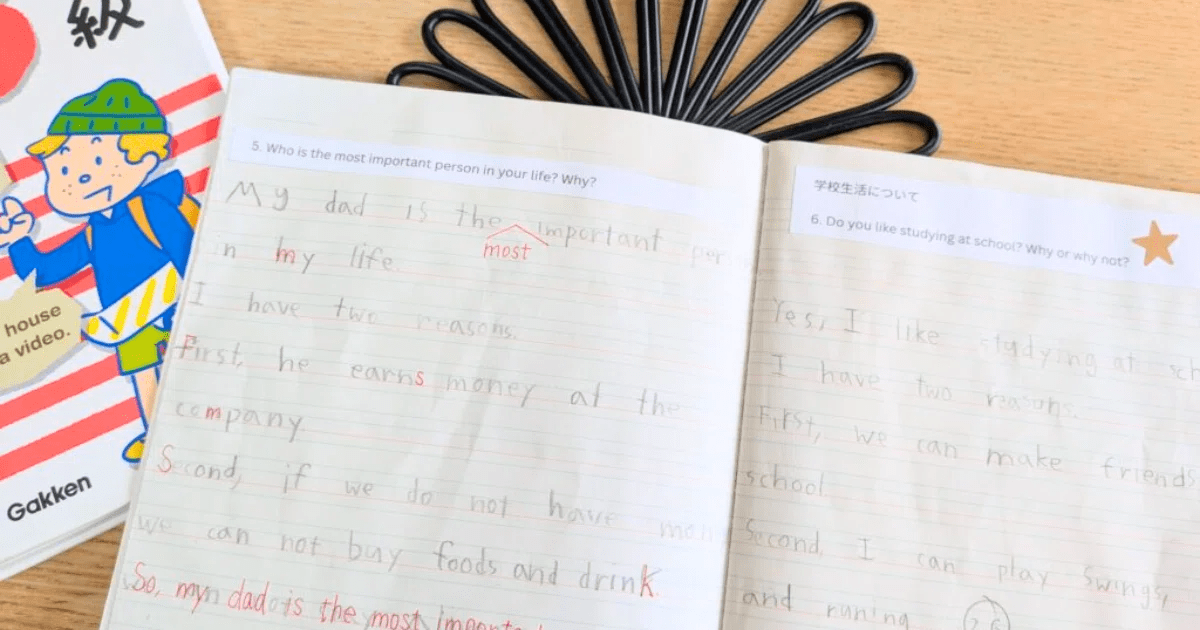 級
house
a video.
Gakken
5. Who is the most important person in your life? Why?
My dad is the important per
most
in my life.
I have two reasons.
First, he earns money at the
company.
Second, if we do not have mon
we can not buy foods and drink.
So, my dad is the most important
学校生活について
6. Do you like studying at school? Why or why not?
Yes, I like studying at sch
I have two reasons.
First, we can make friends
school
Second, I can play swings,
and runing
26